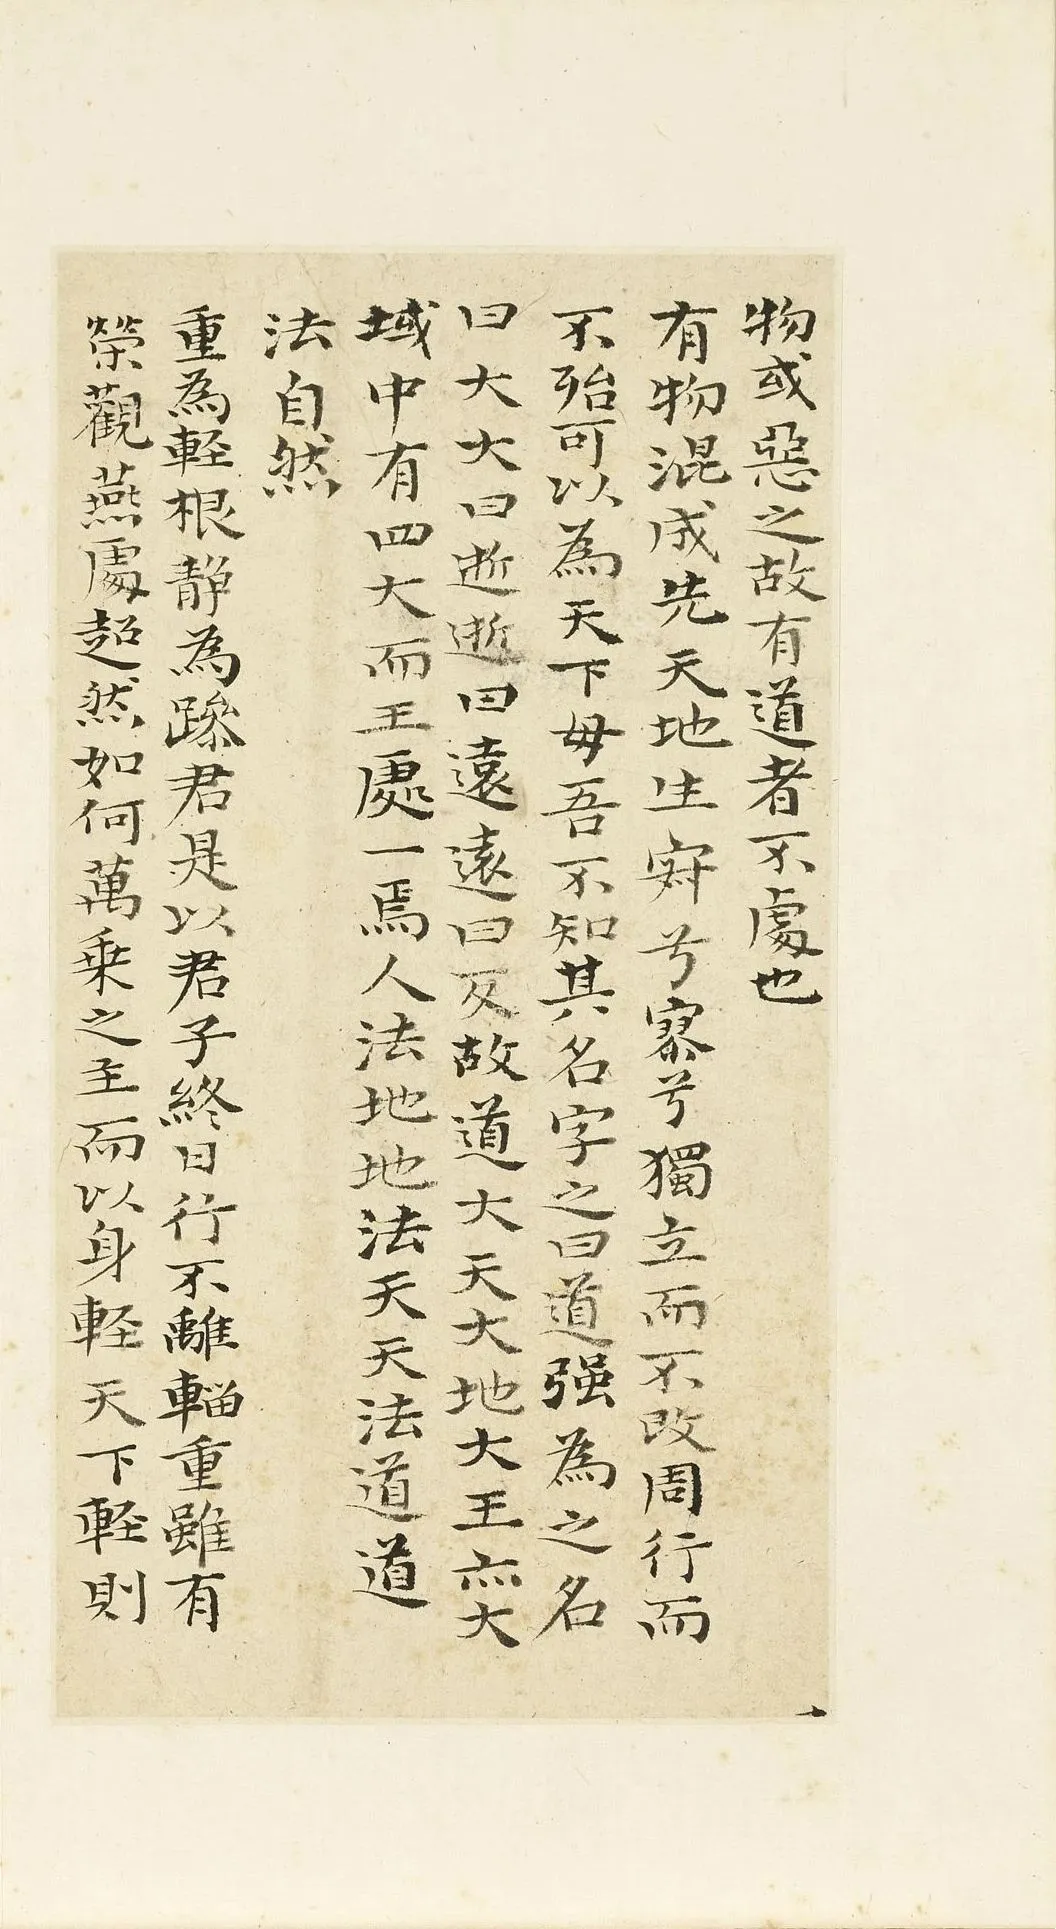 物或惡之故有道者不處也
有物混成先天地生寂兮寥兮獨立而不改周行而
不殆可以為天下母吾不知其名字之曰道强為之名
曰大大曰逝逝曰遠遠曰反故道大天大地大王亦大
域中有四大而王處一焉人法地地法天天法道道
法自然
重為輕根静為躁君是以君子終日行不離輜重雖有
榮觀燕處超然如何萬乗之主而以身輕天下輕則